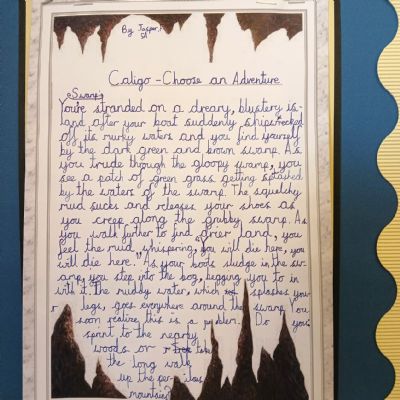 By Jasper,
5A
Caligo - Choose an Adventure
Swamp
You're stranded on a dreary, blustery is-
land after your boat suddenly shipswrecked
off its murky waters and you find yourself
by the dark green and brown swamp. As
you trude through the gloopy swamp, you
see a patch of green grass getting splashed
by the waters of the swamp. The squelchy
mud sucks and releases your shoes as
you creep along the grubby swamp. As
you walk further to find drier land, you
feel the mud whispering, "You will die here, you
will die here." As your boots sludge in the sw-
amp, you step into the bog, begging you to in
with it. The muddy water, which splashes your
legs, goes everywhere around the swamp. You
soon realize this is a problem. Do you
sprint to the nearby
woods or take
the long walk
up the per-ilous
mountains?